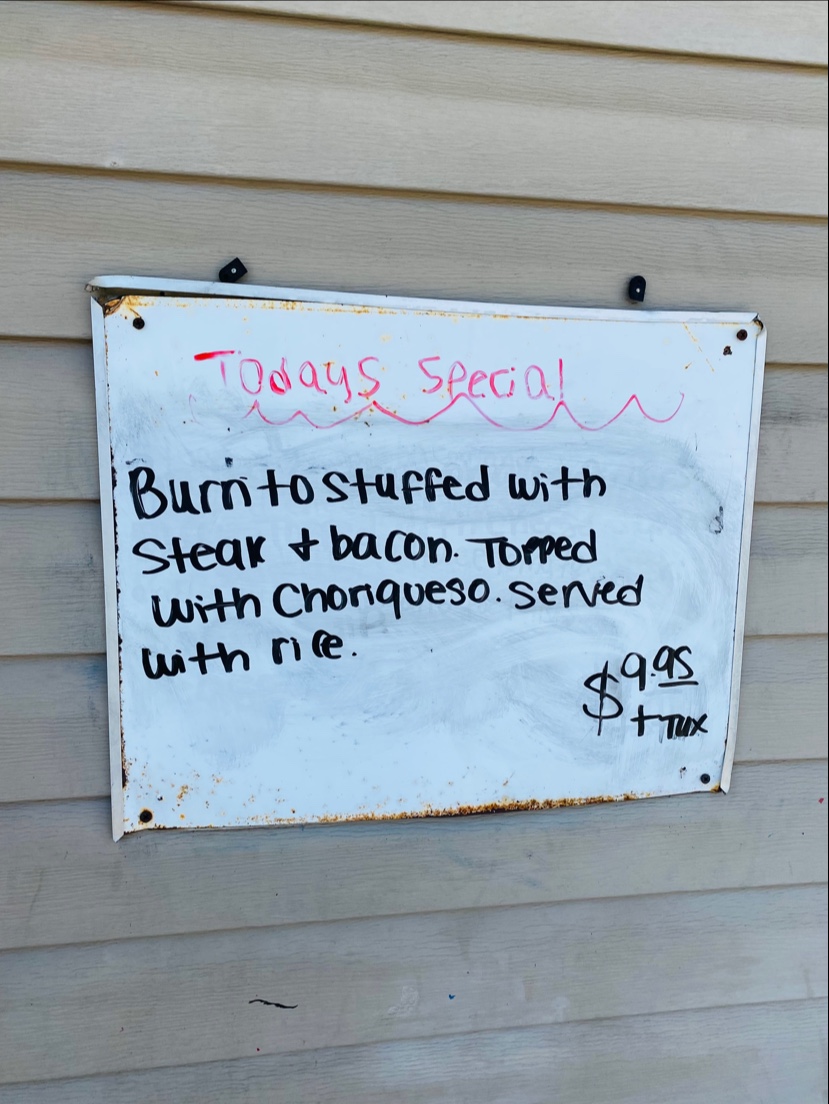 Todays Special
Burrito stuffed with
Steak + bacon. Topped
with Choriqueso. Served
with rice.
$9.95
+ Tax